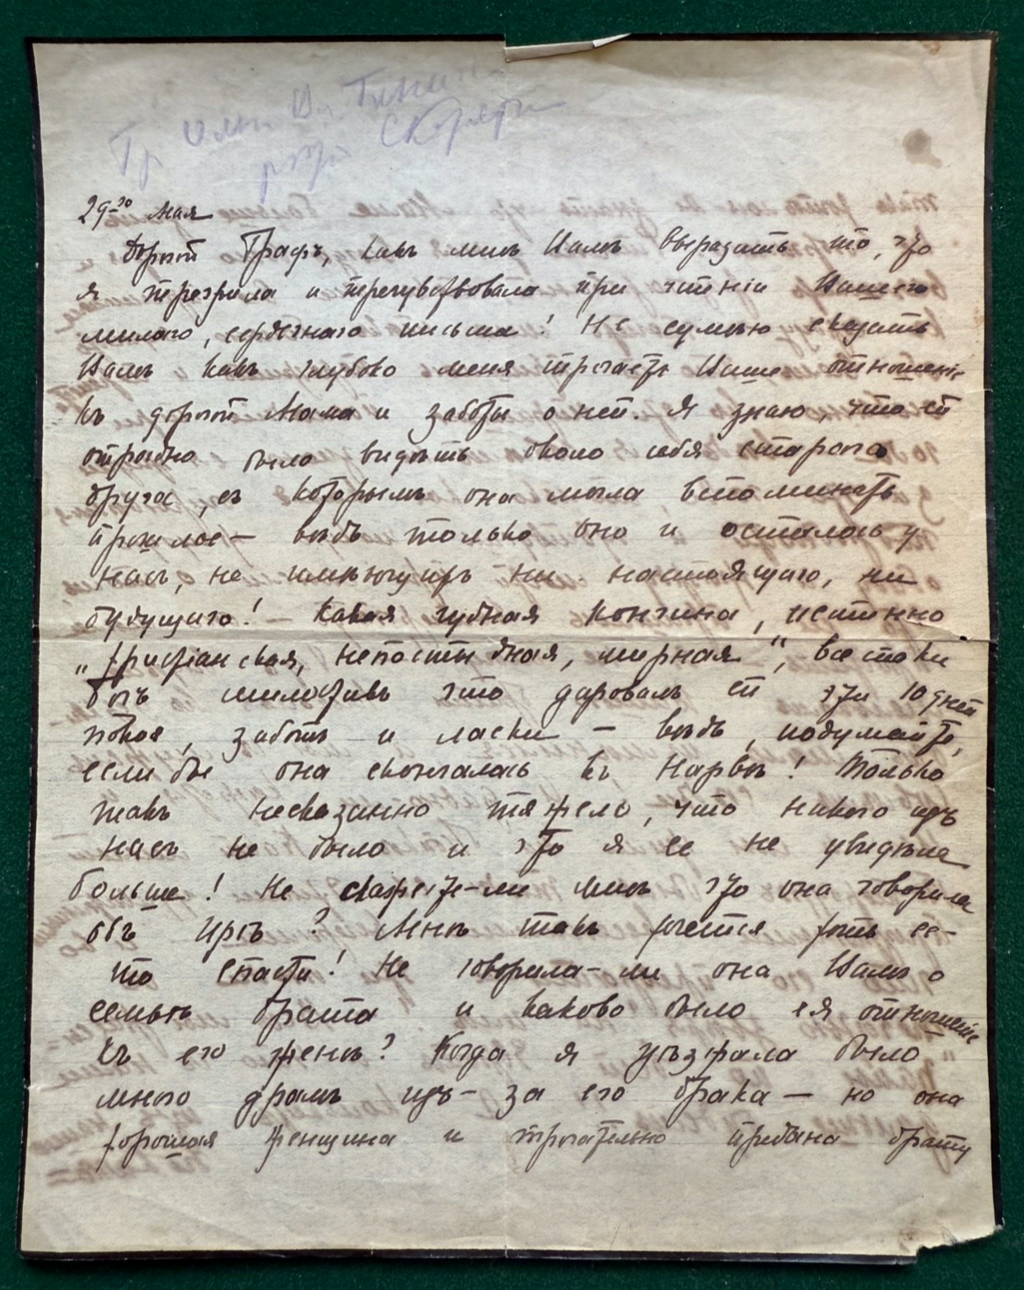 29го Мая
Дорогой Графъ, какъ мнѣ Вамъ выразить то, что
я перезрила и перечувствовала при чтеніи Вашего
милаго, сердечнаго письма! Не сумѣю сказать
Вамъ какъ глубоко меня трогаетъ Ваше отношеніе
къ дорогой Мама и заботы о ней. Я знаю, что ей
отрадно было видѣть около себя стараго
друга, съ которымъ она могла вспоминать
прошлое — вѣдь только оно и осталось у
насъ, не имѣющихъ ни настоящаго, ни
будущаго! Какая чудная кончина, истинно
„христіанская, непостыдная, мирная", все таки
Богъ милостивъ что даровалъ ей эти 10 дней
покоя, заботъ и ласки — вѣдь, подумайте,
если бы она скончалась въ Нарвѣ! Только
такъ несказанно тяжело, что никого изъ
насъ не было и что я ее не увидѣла
больше! Не скажете-ли мнѣ что она говорила
объ Ирѣ? Мнѣ такъ хочется хоть ее-
то спасти! Не говорила-ли она Вамъ о
семьѣ брата и каково было ея отношеніе
къ его женѣ? Когда я уѣзжала было
много драмъ изъ-за его брака — но она
хорошая женщина и трогательно предана брату